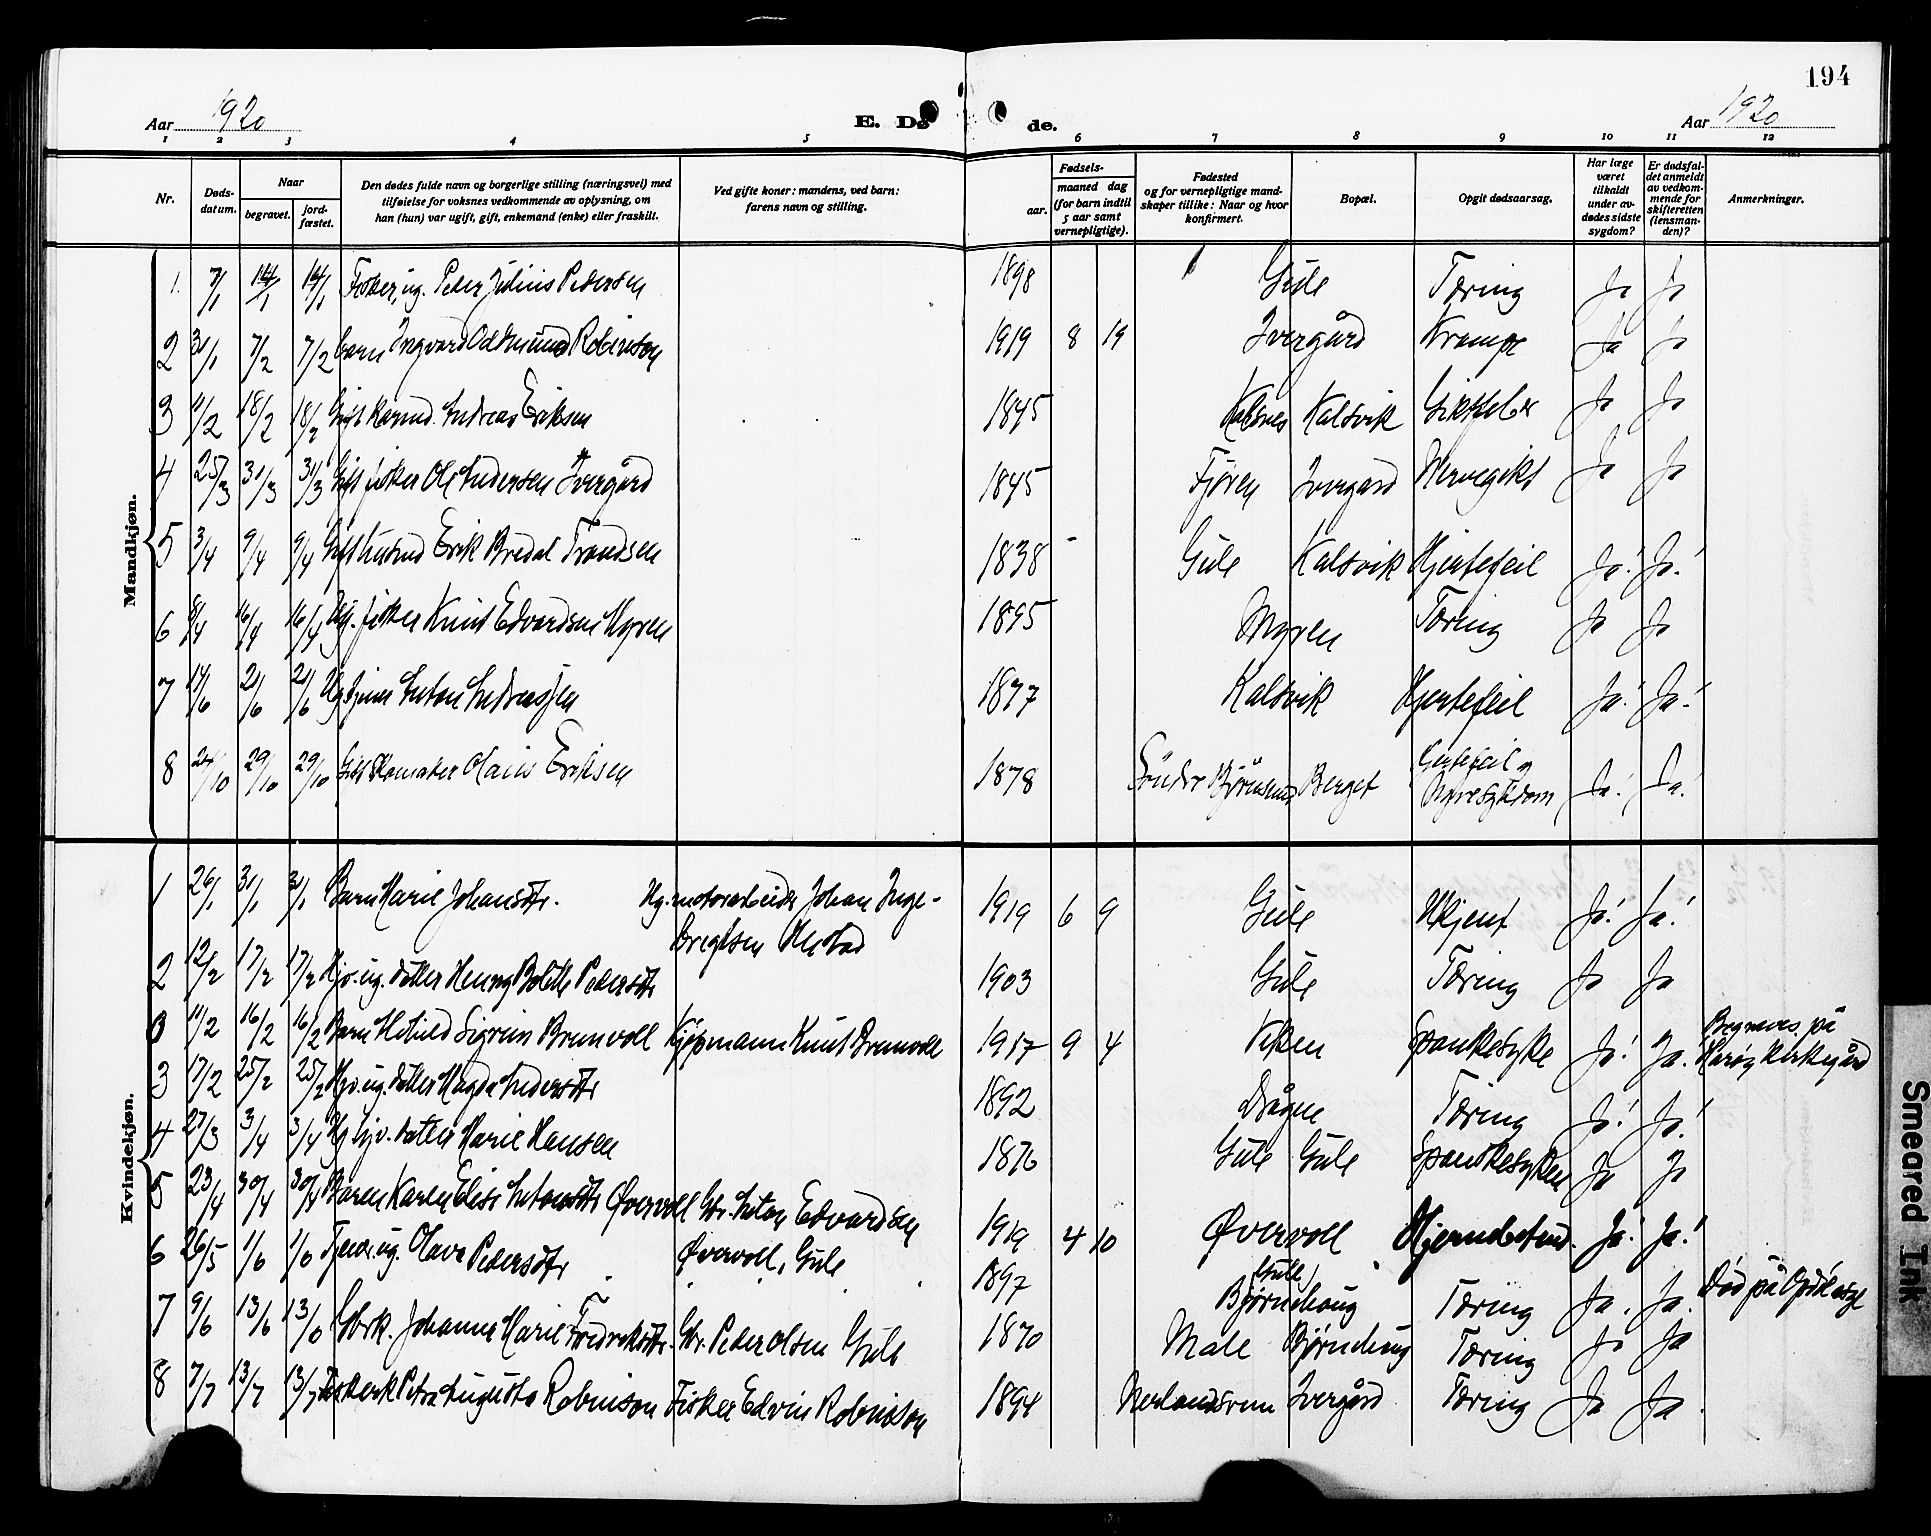 194
Aar 1920 E. Dø de. Aar 1920
1 2 3 4 5 6 7 8 9 10 11 12
Nr. Døds-datum. Naar begravet. jord-fæstet. Den dødes fulde navn og borgerlige stilling (næringsvei) med tilføielse for voksnes vedkommende av oplysning, om han (hun) var ugift, gift, enkemand (enke) eller fraskilt. Ved gifte koner: mandens, ved barn: farens navn og stilling. Fødsels- aar. maaned dag (for barn indtil 5 aar samt vernepligtige). Fødested og for vernepligtige mandskaper tillike: Naar og hvor konfirmert. Bopæl. Opgit dødsaarsag. Har læge været tilkaldt under avdødes sidste sygdom? Er dødsfaldet anmeldt av vedkommende for skifteretten (lensmanden)? Anmerkninger.
Mandkjøn.
1. 7/1 14/1 14/1 Fisker, ug. Peder Julius Pedersen 1898 Gule Tæring Ja Ja
2 31/1 7/2 7/2 barn Ingvard Odmund Robinson 1919 8 19 Ivergård Krampe Ja Ja
3 11/2 18/2 18/2 Gift Andreas Eriksen 1845 Kalsnes Kalsvik Ja Ja
4 25/3 31/3 31/3 Gift fisker Ole Andersen Ivergård 1845 Fjøren Ivergård Ja Ja
5 3/4 9/4 9/4 Gift Erik Bredal Trondsen 1838 - Gule Kalsvik Hjertefeil Ja! Ja!
6 8/4 16/4 16/4 Ug. fisker Knut Edvardsen Myren 1895 Myren Tæring Ja Ja
7 14/6 21/6 21/6 Ug Anton Andreassen 1877 Kalsvik Hjertefeil Ja! Ja!
8 24/10 29/10 29/10 Gift Skomaker Olaus Eriksen 1878 Søndre Bjørnsnes Berget Hjertefeil og Nyresykdom Ja! Ja!
Kvindekjøn.
1 26/1 31/1 31/1 Barn Marie Johansdtr. Ug. motorarbeider Johan Inge-
brigtsen Olestad 1919 6 9 Gule Ukjent Ja! Ja!
2 12/2 17/2 17/2 Hjv. ug. datter Henny Bolette Pedersdtr 1903 Gule Tæring Ja Ja
0 11/2 16/2 16/2 Barn Sigrun Brunvoll Kjøpmann Knut Brunvoll 1917 9 4 Viken Spanskesyke Ja! Ja. Begraves på
Harøy kirkegård
3 17/2 25/2 25/2 Hjv. ug. datter Magda Andersdtr 1892 Drågen Tæring Ja! Ja!
4 27/3 3/4 3/4 Ug hjv. datter Marie Hansen 1876 Gule Gule Spanskesyken Ja Ja
5 23/4 30/4 30/4 Barn Karen Elise Antonsdtr Øvervoll Gbr. Anton Edvardsen
Øvervoll, Gule 1919 4 10 Øvervoll Hjernebetend. Ja! Ja!
6 26/5 1/6 1/6 ug. Olava Pedersdtr 1897 Gule,
Bjørnehaug Tæring Ja. Ja. Død på
7 9/6 13/6 13/6 Gbrk. Johanne Marie Fredriksdtr. Gbr. Peder Olsen Gule 1870 Male Bjørnehaug Tæring Ja Ja
8 7/7 13/7 13/7 Fiskerk Petra Augusta Robinson Fisker Edvin Robinson 1894 Ivergård Tæring Ja Ja
Smeared Ink